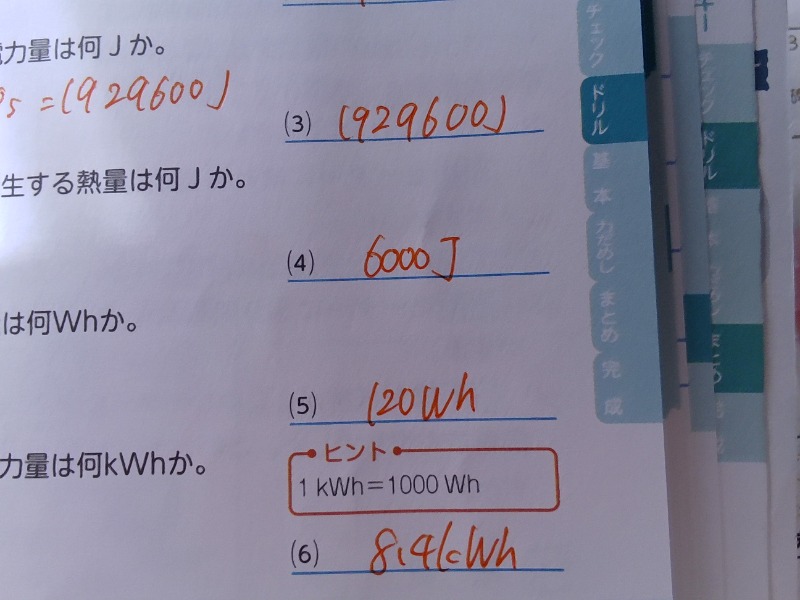 力量は何Jか。
=1929600J
(3) 1929600J
生する熱量は何Jか。
(4) 6000J
は何Whか。
(5) 120Wh
力量は何kWhか。
ヒント
1 kWh=1000 Wh
(6) 8.4kWh
チェック
ドリル
基本
力だめし
まとめ
完成
チェック
ドリル